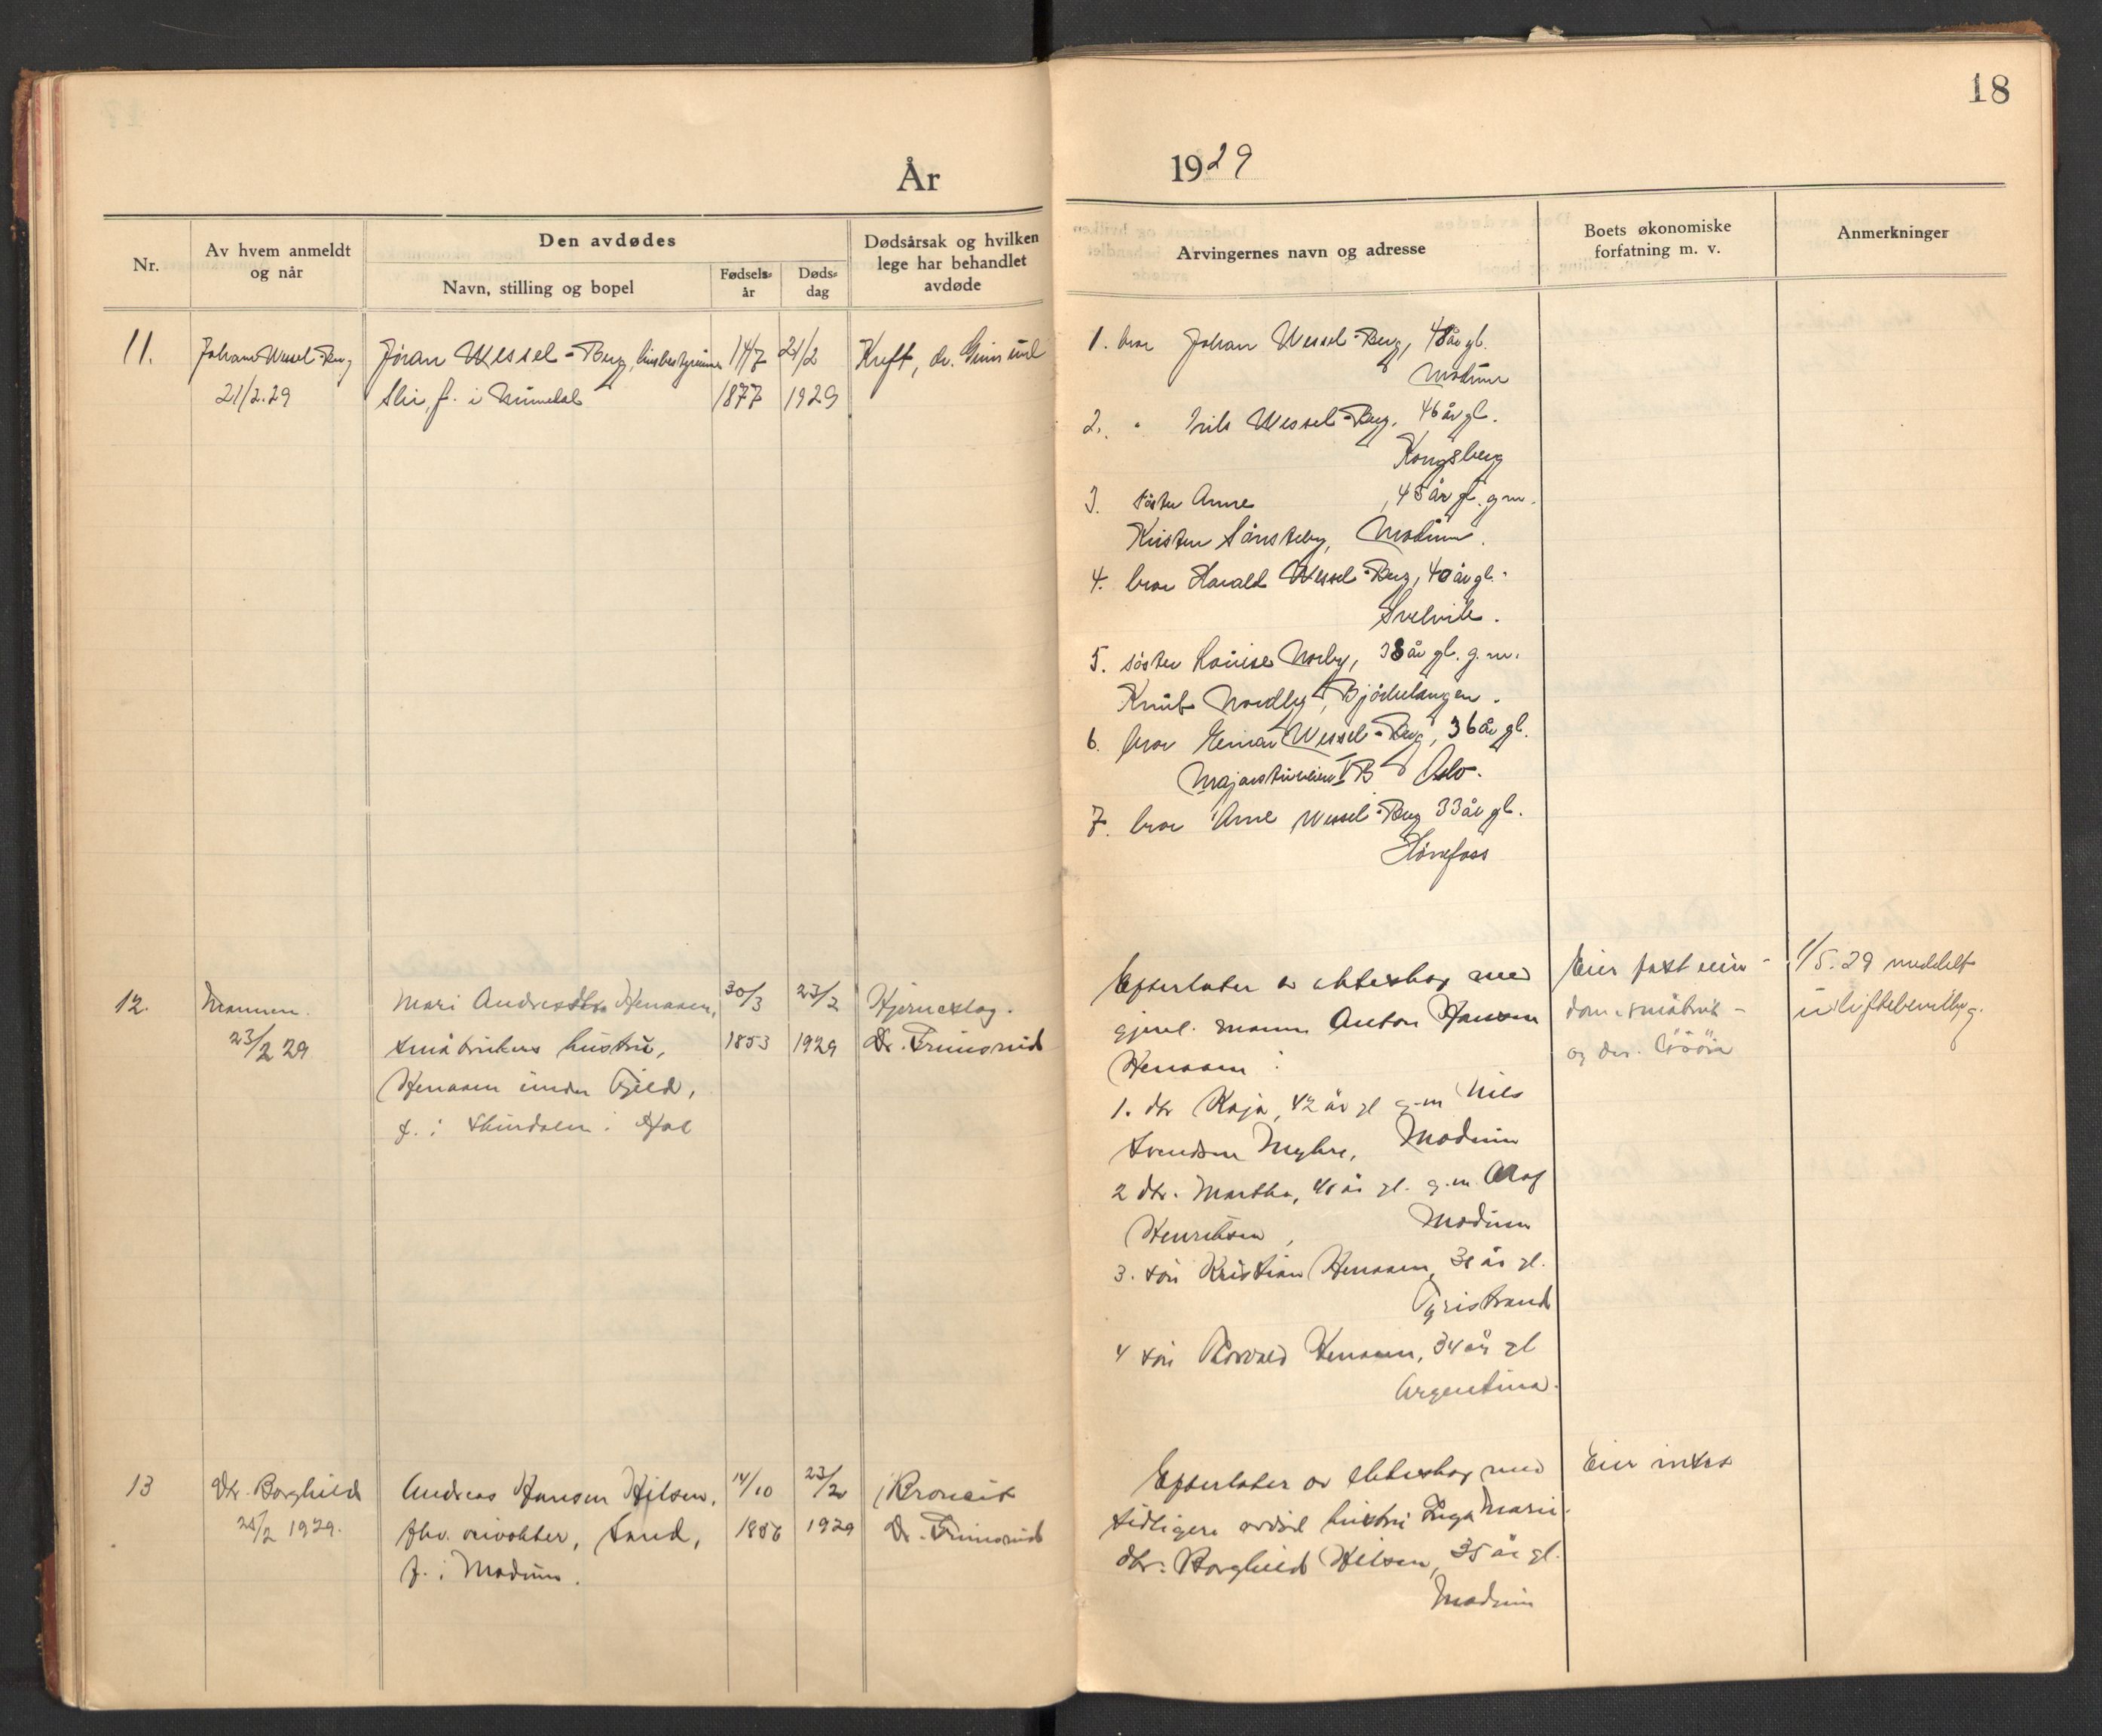 18
År
1929
Nr.
Av hvem anmeldt
og når
Den avdødes
Navn, stilling og bopel
Fødsels-
år
Døds-
dag
Dødsårsak og hvilken
lege har behandlet
avdøde
Arvingernes navn og adresse
Boets økonomiske
forfatning m. v.
Anmerkninger
11.
Johan Wessel-Berg
21/2.29
Jöran Wessel-Berg,
f. i Numedal
14/7
1877
21/2
1929
Kreft, dr.
1. bror Johan Wessel-Berg, 48 år gl.
Modum
2. " Nils Wessel-Berg, 46 år gl.
Kongsberg
3. söster Anne , 43 år gl. g.m.
Kristen Sönsteby, Modum.
4. bror Harald Wessel-Berg, 40 år gl.
Svelvik.
5. söster Louise Norby, 38 år gl. g.m.
Knut Nordby, Björkelangen.
6. bror Einar Wessel-Berg, 36 år gl.
Majorstuveien V B Oslo.
7. bror Arne Wessel-Berg 33 år gl.
Hönefoss
12.
Mannen.
23/2 29
Mari Andreasdtr. Henaaen,
småbrukers hustru,
Henaaen under Fjeld,
f. i Skurdalen i Hol
30/3
1853
23/2
1929
Hjerneslag.
Dr.
Efterlater av ekteskap med
gjenl. mann Anton Hansen
Henaaen:
1. dtr Kaja, 42 år gl g.m Nils
Svendsen Myhre, Modum
2 dtr. Martha, 40 år gl. g.m. Olaf
Henriksen, Modum
3. sön Kristian Henaaen, 38 år gl.
Tyristrand
4 sön Thorvald Henaaen, 34 år gl
Argentina.
Eier fast eien-
dom, småbruk -
og div. lösöre
1/5.29 meddelt
uskiftebevilling.
13
Dtr. Borghild
25/2 1929.
Andreas Hansen Hilsen,
fhv. veivokter, Sand,
f. i Modum.
14/10
1856
23/2
1929
Bronkit
Dr.
Efterlater av ekteskap med
tidligere avdöd hustru Inga Marie
dtr. Borghild Hilsen, 35 år gl.
Modum
Eier intet